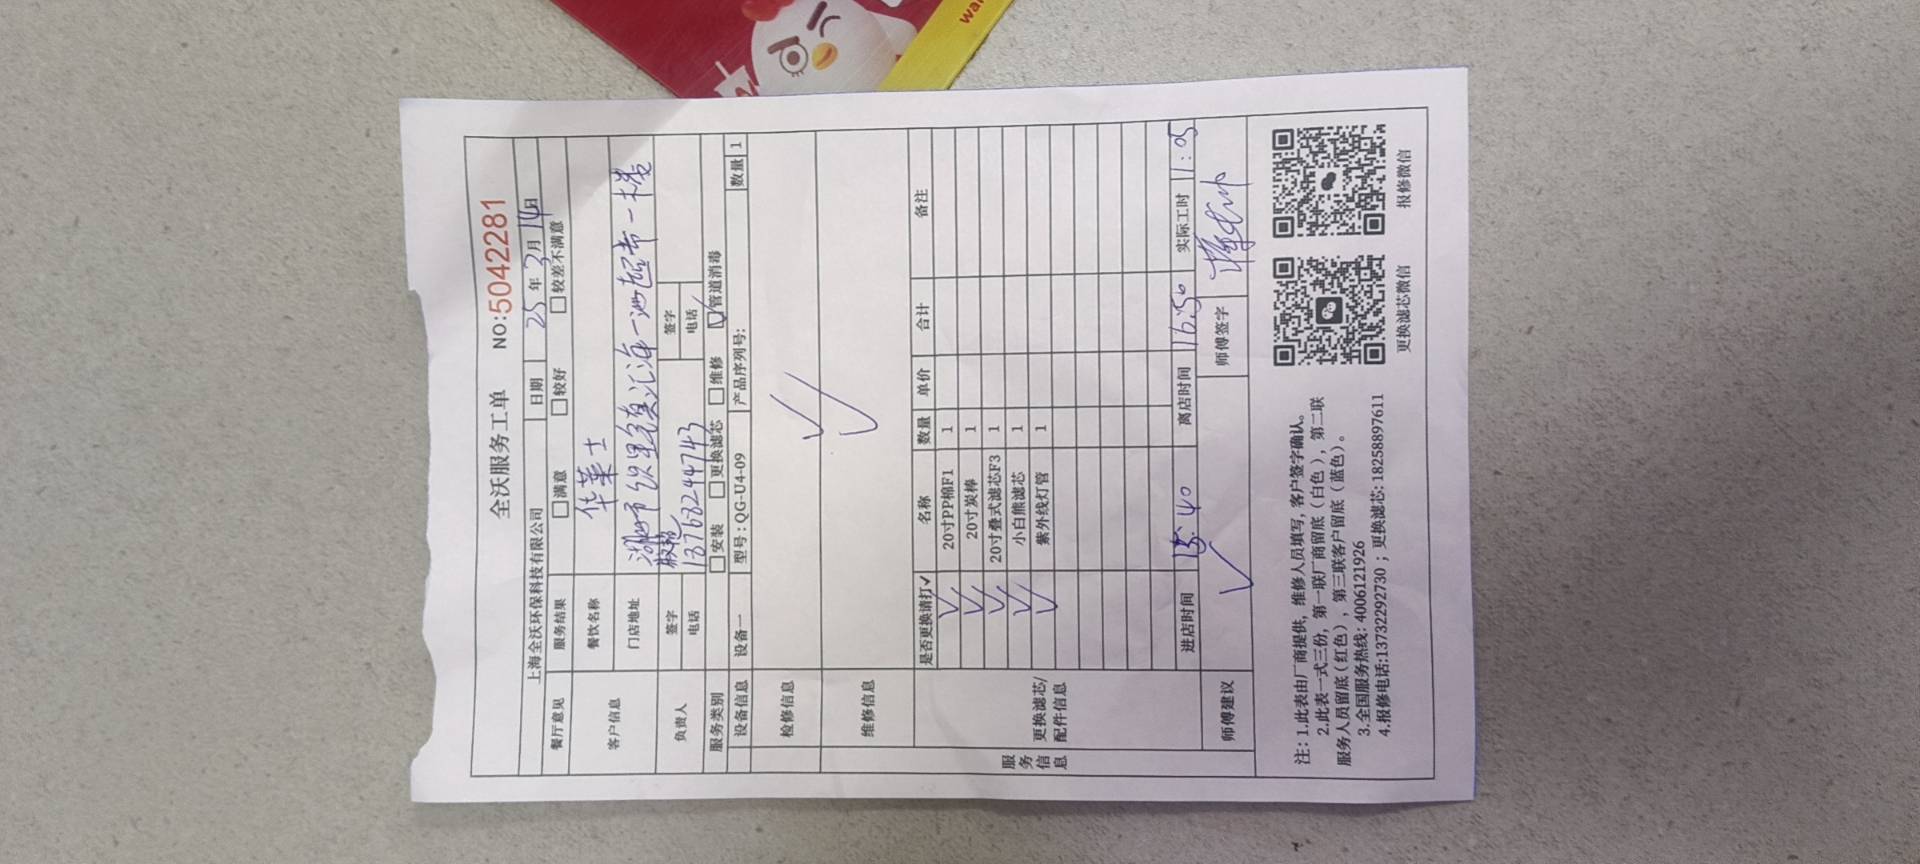 全沃服务工单 NO:5042281
上海全沃环保科技有限公司 日期 25年3月14日
餐厅意见 服务结果 □满意 □较好 □较差不满意
客户信息 餐饮名称 华莱士
门店地址 湖州市织里镇汇海一洲超市一楼
负责人 签字 签字
电话 13768244743 电话
服务类别 □安装 □更换滤芯 □维修 ☑管道消毒
设备信息 设备一 型号:QG-U4-09 产品序列号: 数量 1
服务信息
检修信息 ✓
维修信息 ✓
更换滤芯/配件信息
是否更换请打✓ 名称 数量 单价 合计 备注
✓ 20寸PP棉F1 1
✓ 20寸炭棒 1
✓ 20寸叠式滤芯F3 1
✓ 小白熊滤芯 1
✓ 紫外线灯管 1
进店时间 15:40 离店时间 16:50 实际工时 1:05
师傅建议 ✓ 师傅签字
注:1.此表由厂商提供,维修人员填写,客户签字确认。
2.此表一式三份,第一联厂商留底(白色),第二联
服务人员留底(红色),第三联客户留底(蓝色)。
3.全国服务热线:4006121926
4.报修电话:13732292730;更换滤芯:18258897611
更换滤芯微信 报修微信